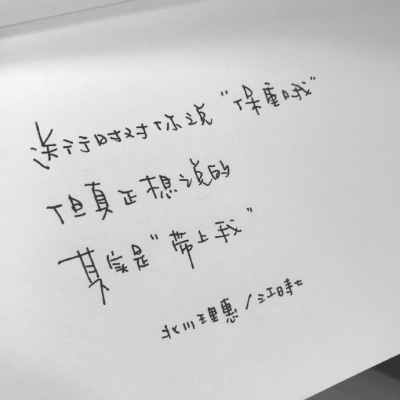 送行时对你说“保重哦”
但真正想说的
其实是“带上我”
北川理惠/江時七